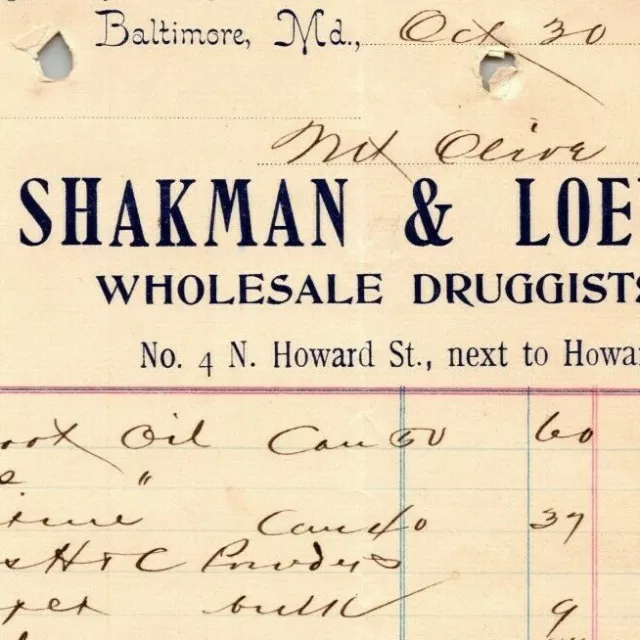 Baltimore, Md., Oct 30
Mt Olive
SHAKMAN & LOE
WHOLESALE DRUGGISTS
No. 4 N. Howard St., next to Howa
Oil Can 50 60
"
Can 40 37
H & C Powders
bulk 9